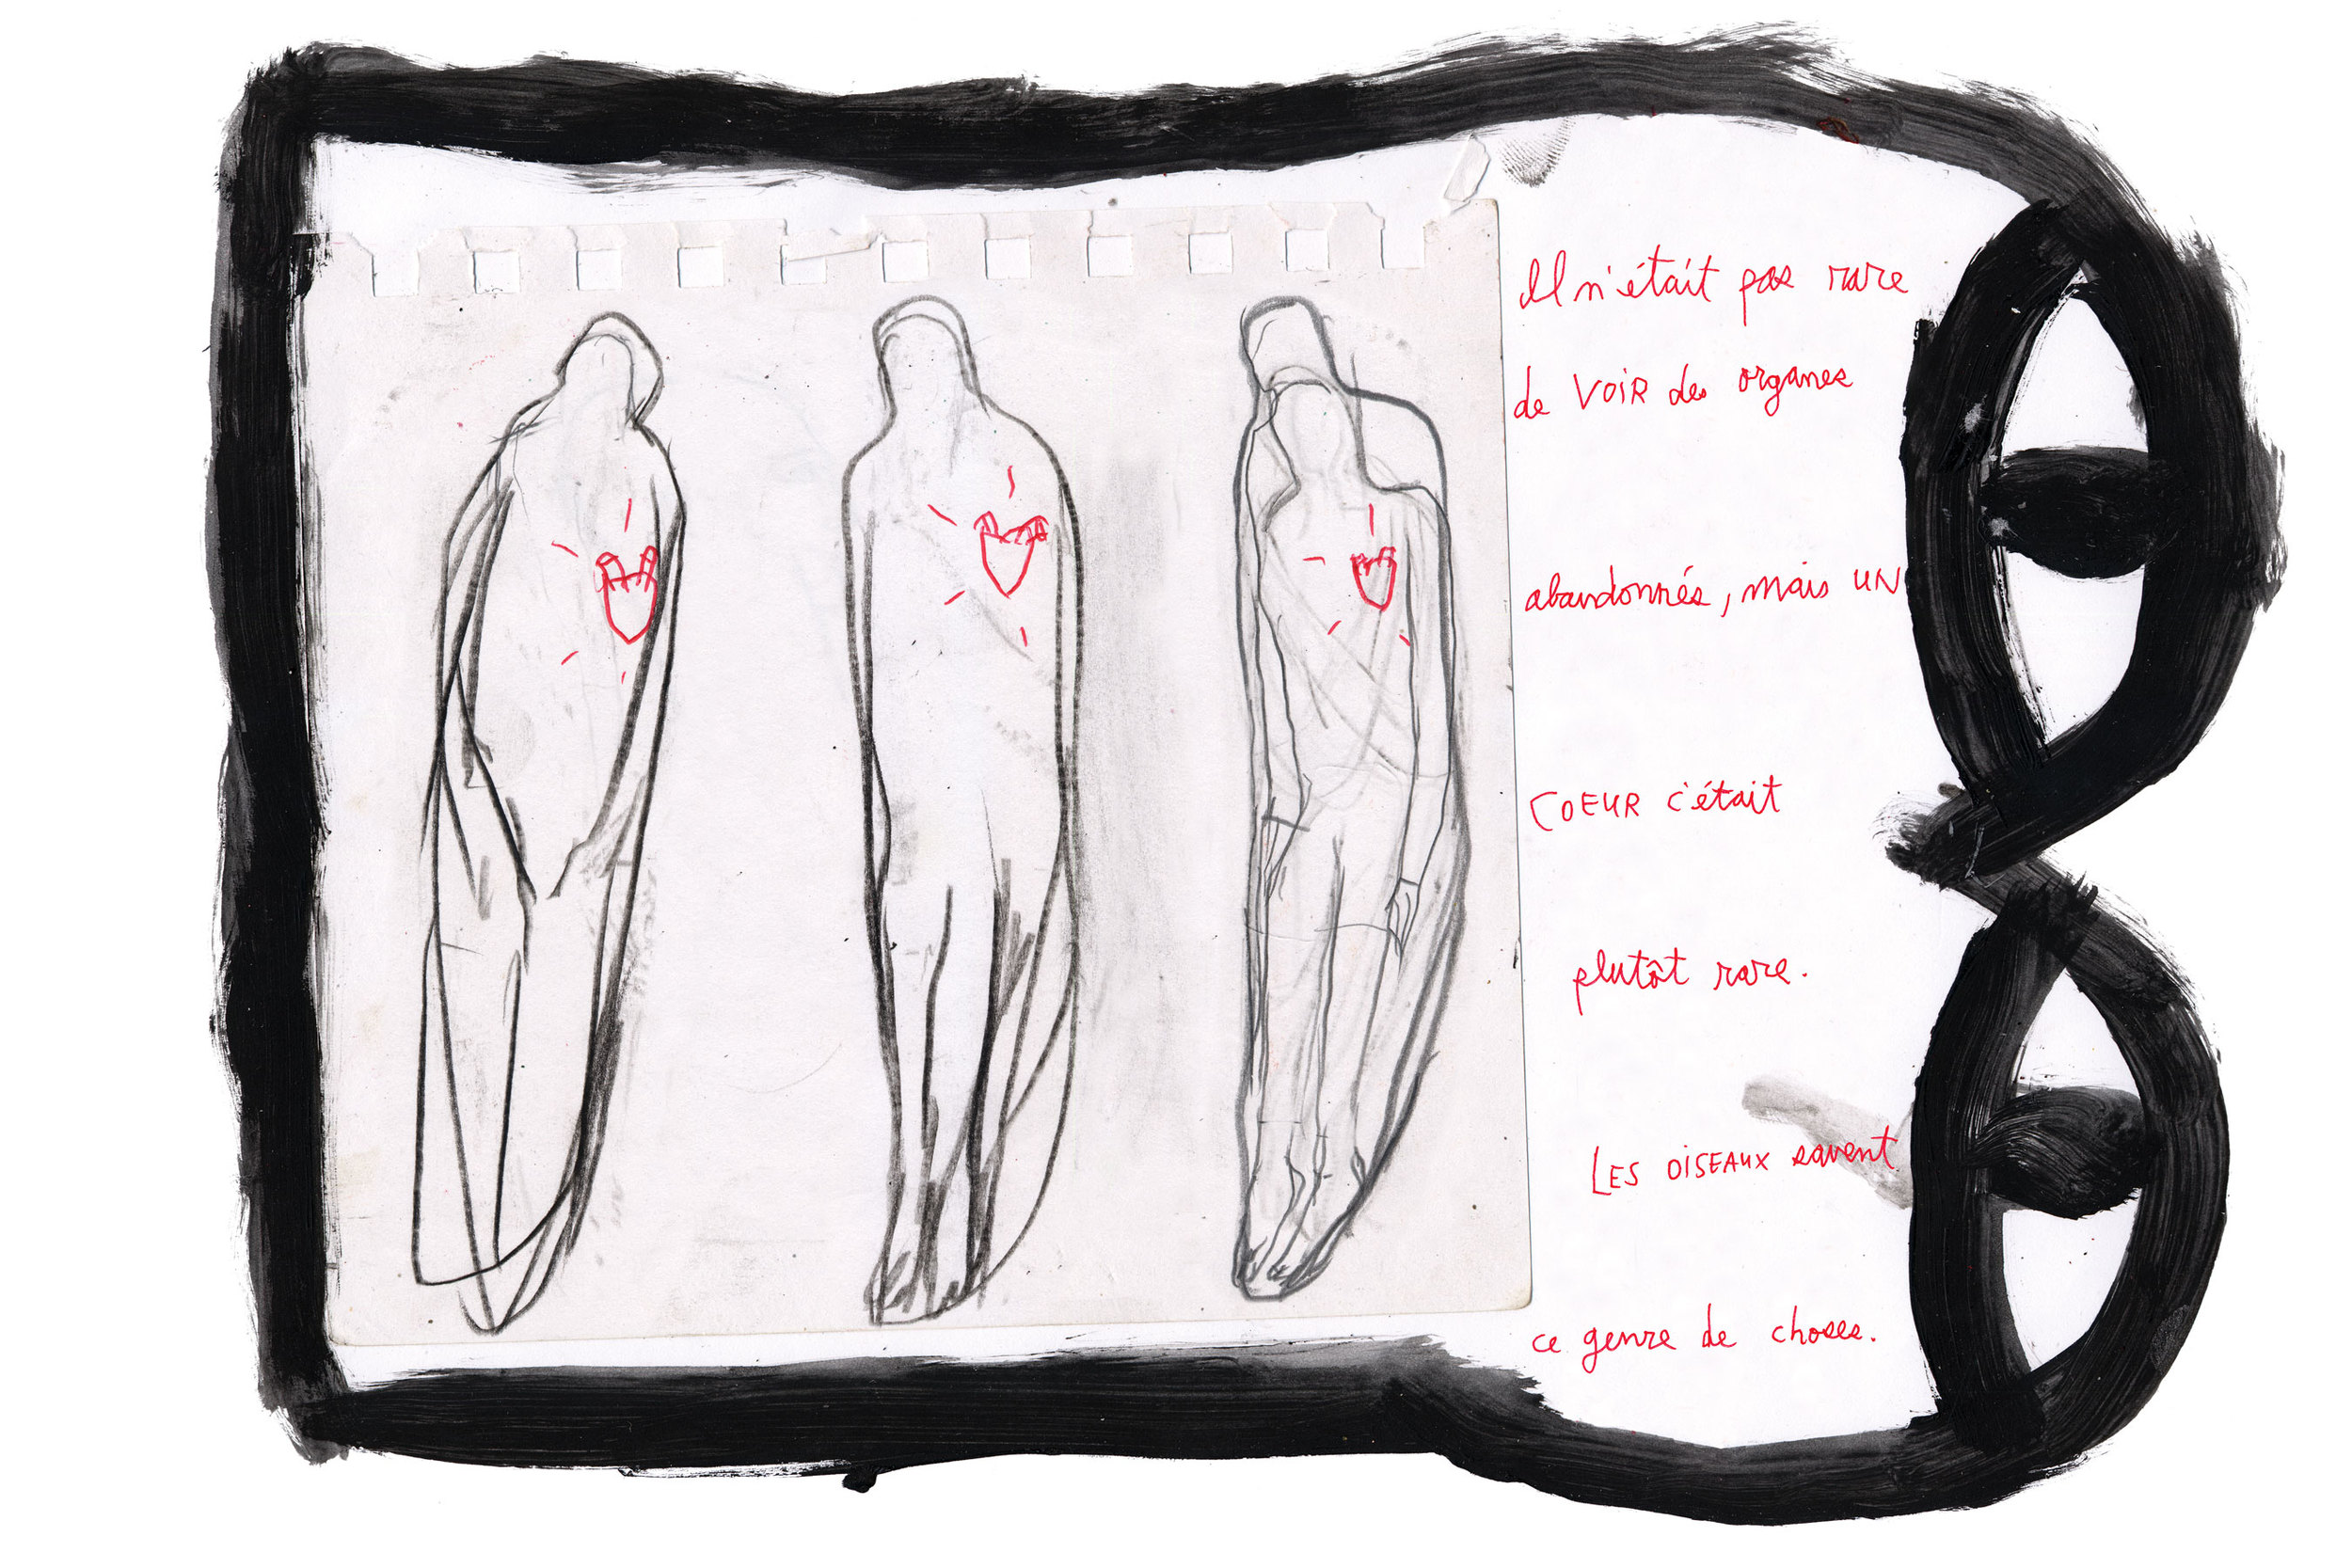 Il n'était pas rare
de VOIR des organes
abandonnés, mais UN
COEUR c'était
plutôt rare.
LES OISEAUX savent
ce genre de choses.